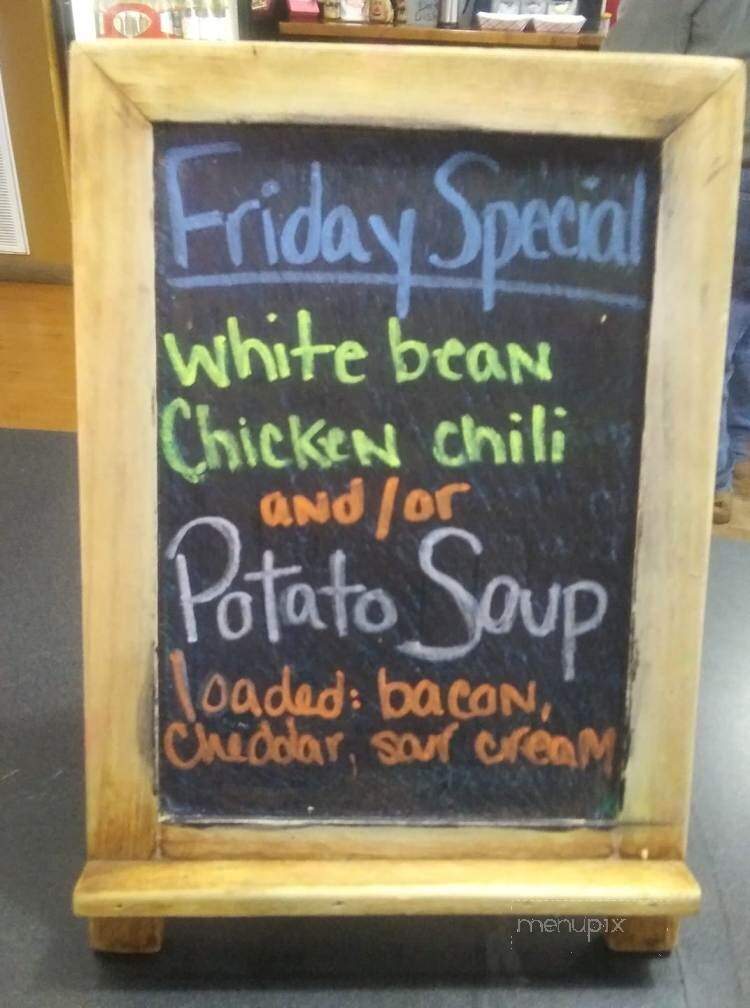 Friday Special
White bean
Chicken chili
and/or
Potato Soup
loaded: bacon,
Cheddar, sour cream
menupix